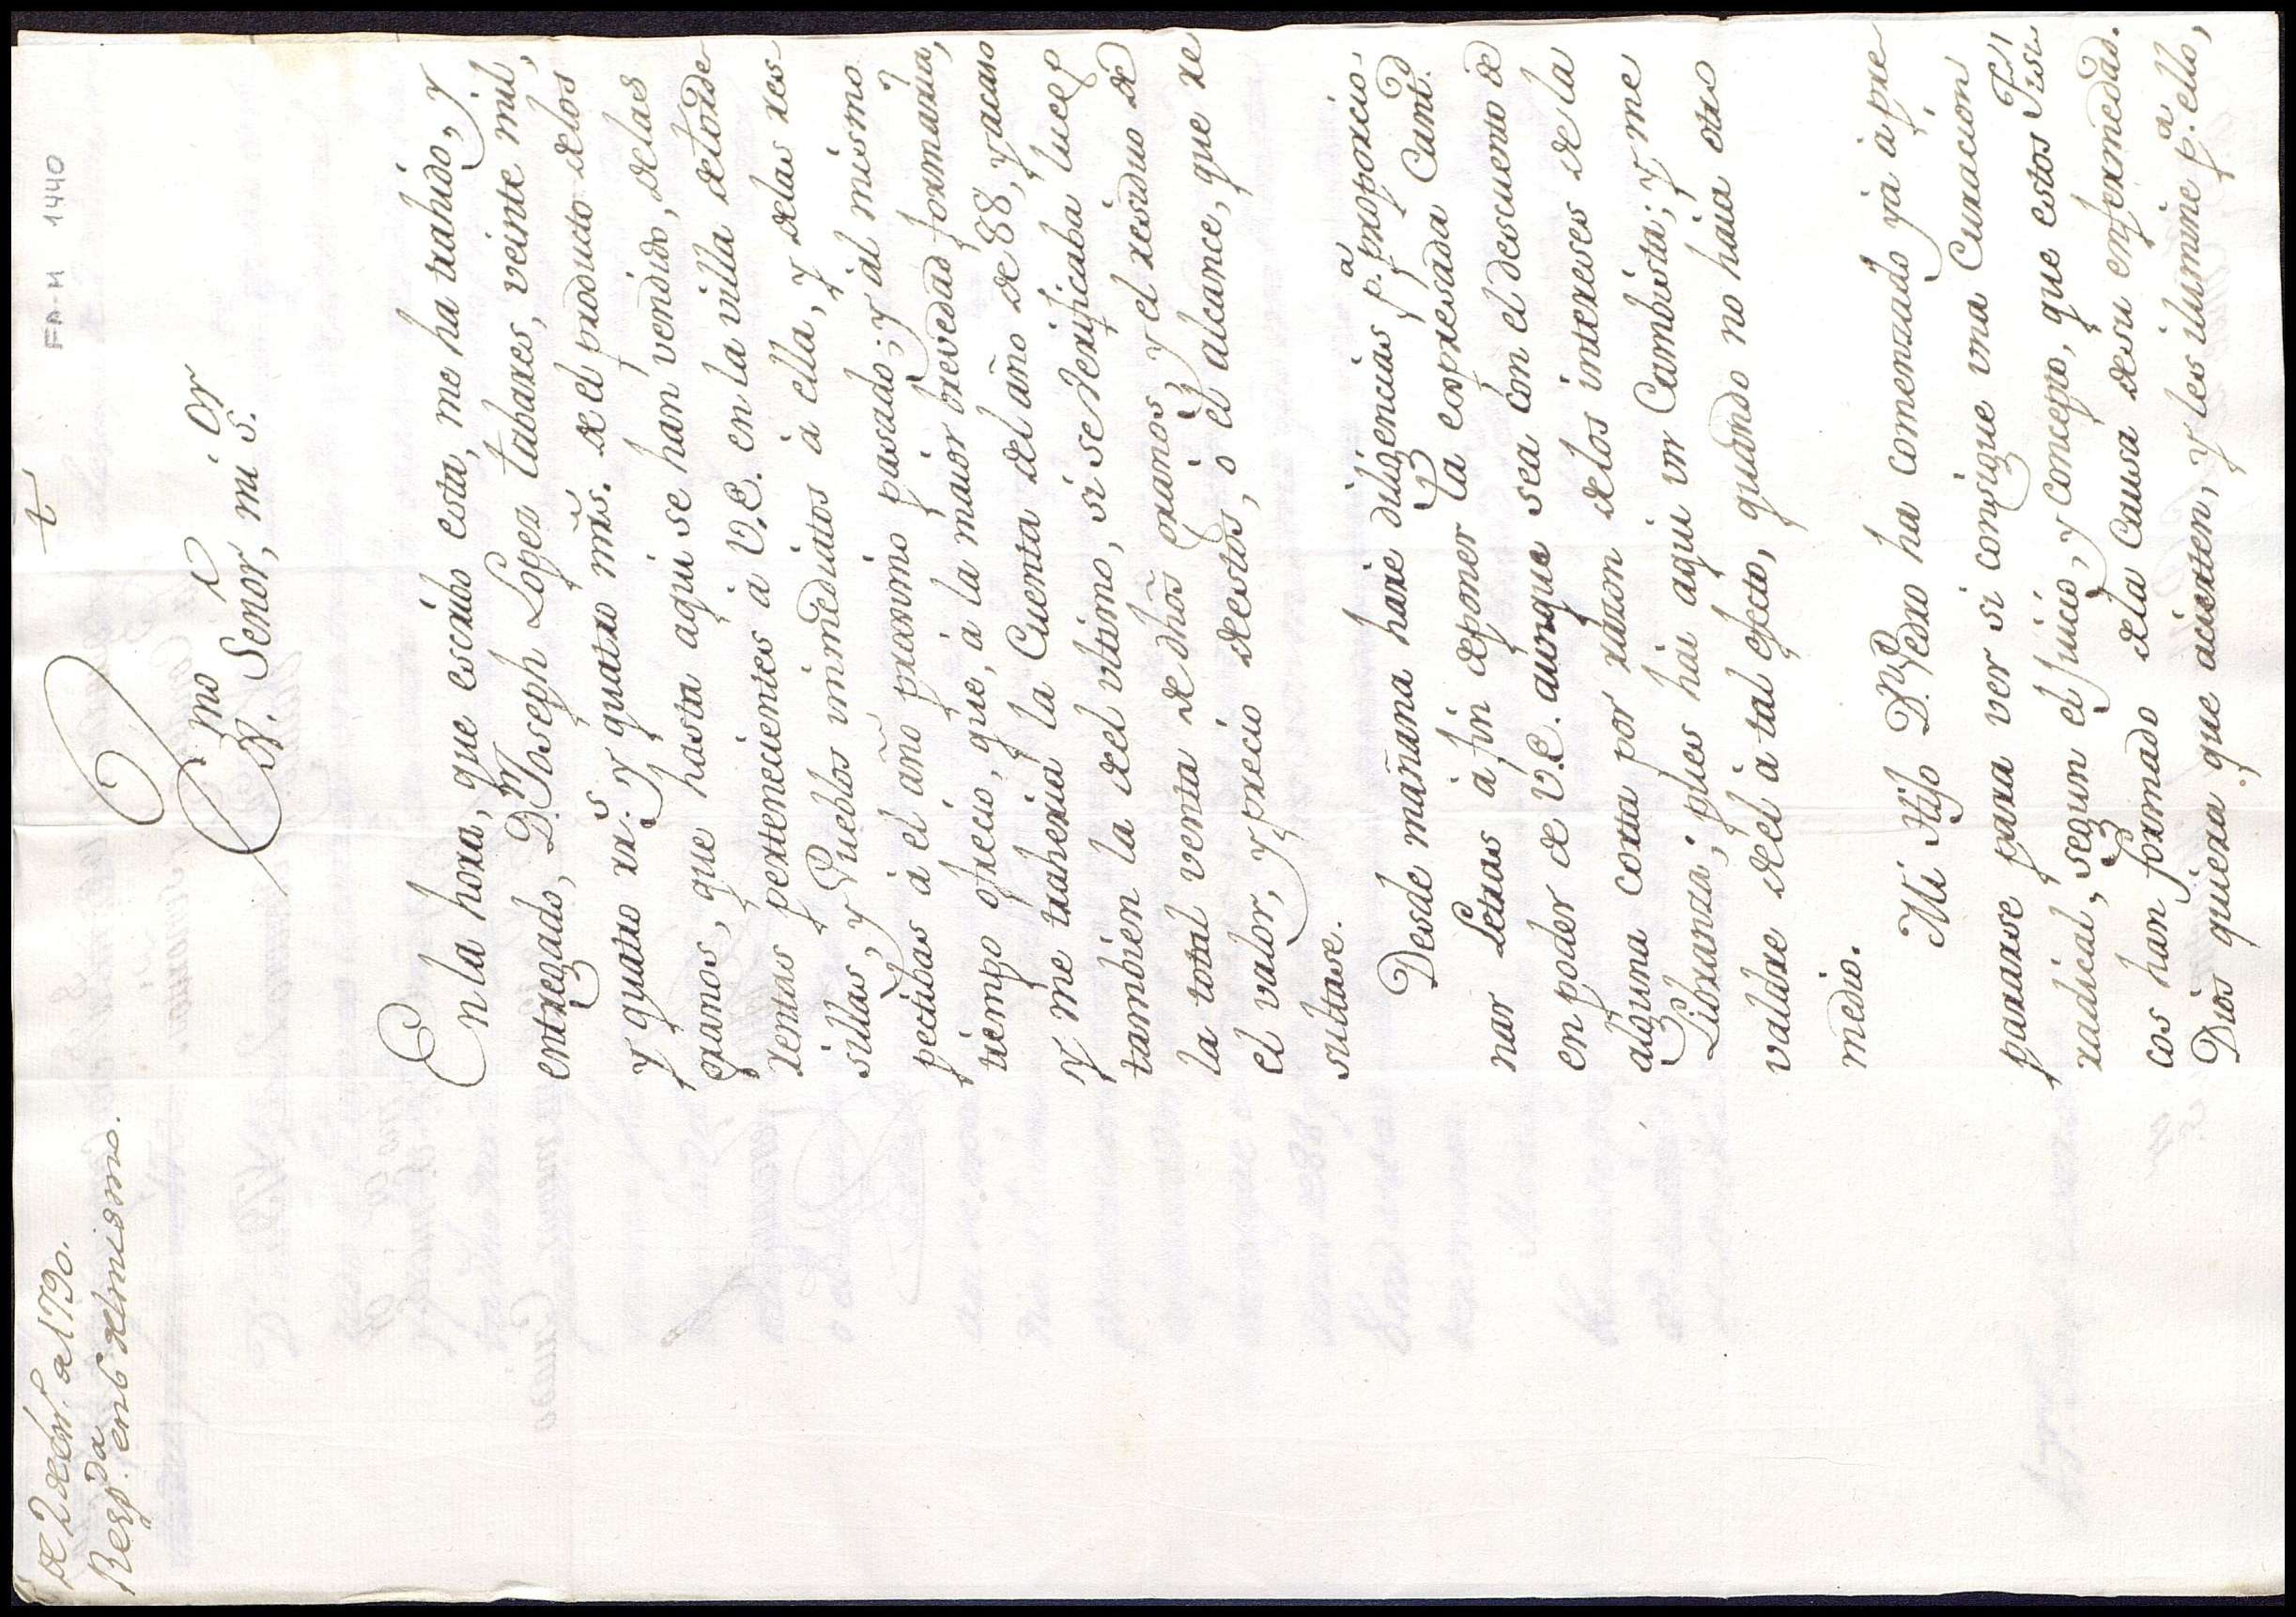 FA-M 1440
t
de 2 de febr.o de 1790.
Resp.da en 6 del mismo.
Ex.mo Señor, mi S.or
En la hora, que escribo esta, me ha trahido, y
entregado, D.n Joseph Lopez tabares, veinte mil,
y quatro rr.s y quatro mr̃s. de el producto delos
granos, que hasta aqui se han vendido, delas
rentas pertenecientes à V.E. en la villa detorde
sillas, y Pueblos inmediatos à ella, y delas res
pectibas à el año proximo pasado; y àl mismo
tiempo ofrecio, que, à la maior brevedad formaria,
y me traheria la Cuenta del año de 88, y acaso
tambien la del ultimo, si se verificaba luego
la total venta de dhõs granos y el residuo de
el valor, y precio destos, ò el alcance, que re
sultase.
Desde mañana harè diligencias p.a proporcio
nar Letras à fin deponer la expresada Cant.d
en poder de V.E. aunque sea con el descuento de
alguna corta por razon delos intereses de la
Libranza; pues hai aqui un Cambista; y me
valdre del à tal efecto, quando no haia otro
medio.
Mi Hijo D.n Pedro ha comenzado yà à pre
pararse para ver si consigue una Curacion
radical, segun el juicio, y concepto, que estos Fisi
cos han formado dela Causa desu enfermedad.
Dios quiera que acierten, y les ilumine p.a ello,